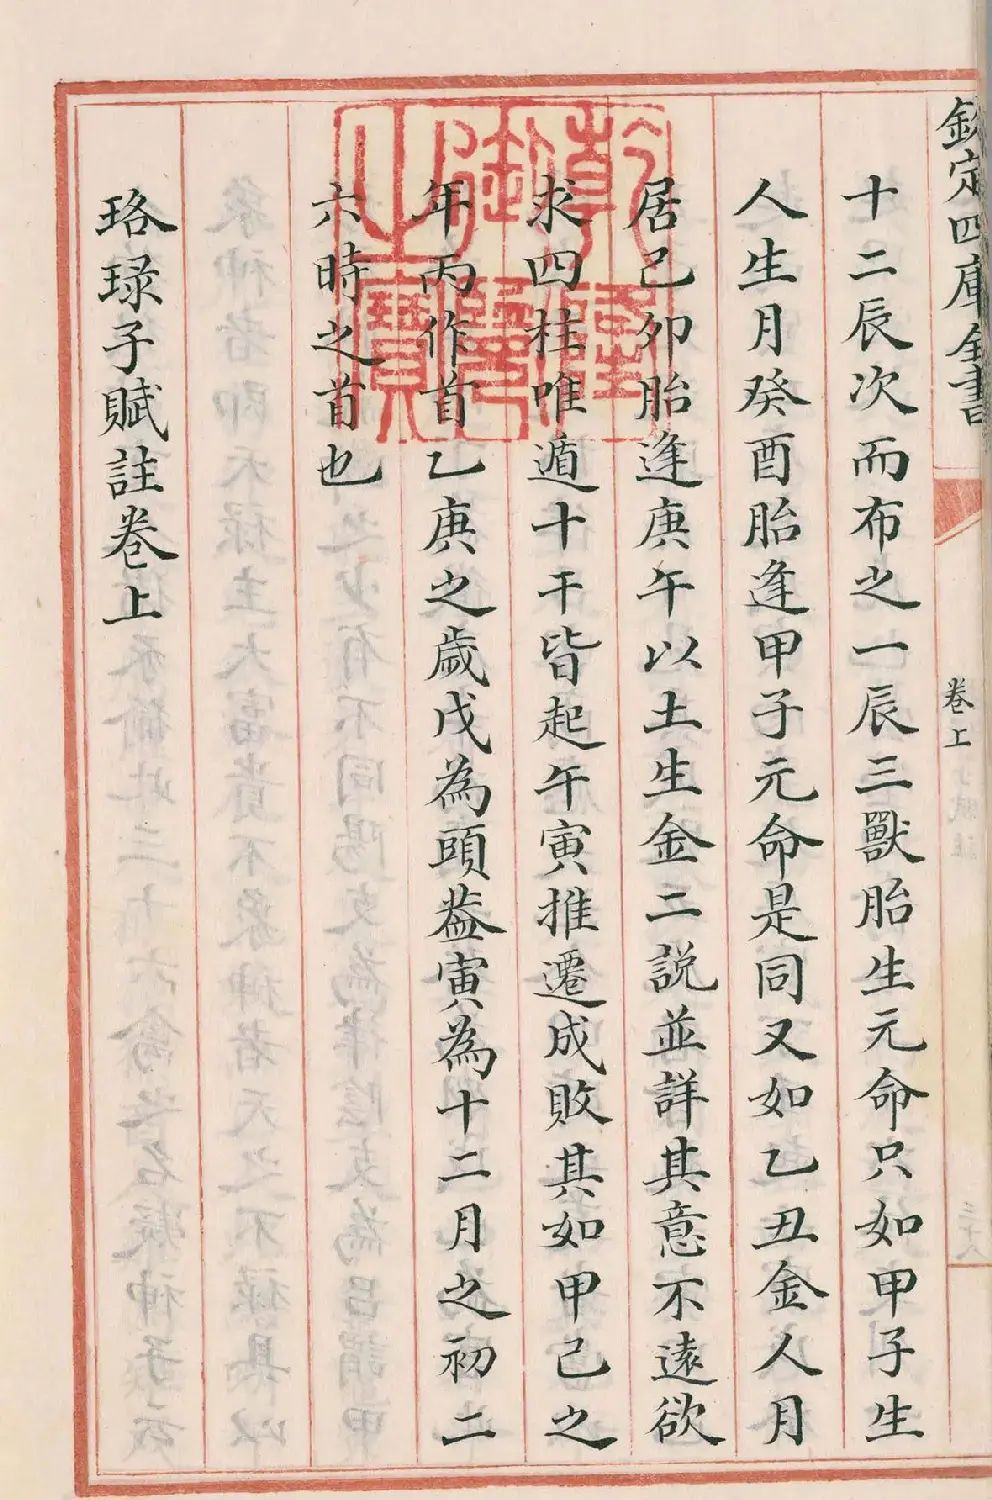 欽定四庫全書
卷上
十二辰次而布之一辰三獸胎生元命只如甲子生
人生月癸酉胎逢甲子元命是同又如乙丑金人月
居己卯胎逢庚午以土生金二說並詳其意不遠欲
求四柱唯遁十干皆起午寅推遷成敗其如甲己之
年丙作首乙庚之歲戊為頭葢寅為十二月之初二
六時之首也
珞琭子賦註卷上
乾隆御覽之寶